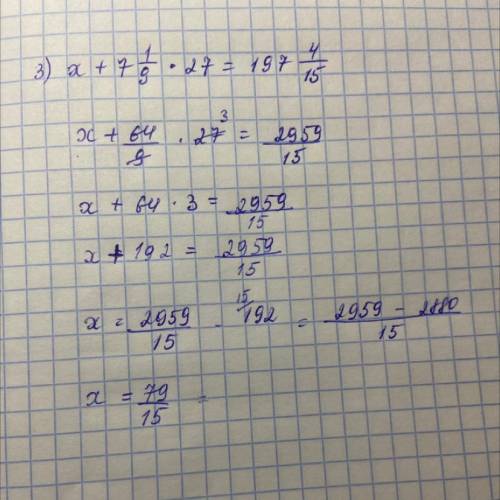 3) x + 7 1/9 · 27 = 197 4/15
x + 64/9 · 27 ³ = 2959/15
x + 64 · 3 = 2959/15
x + 192 = 2959/15
x = 2959/15 - ¹⁵ 192 = 2959 - 2880/15
x = 79/15 =